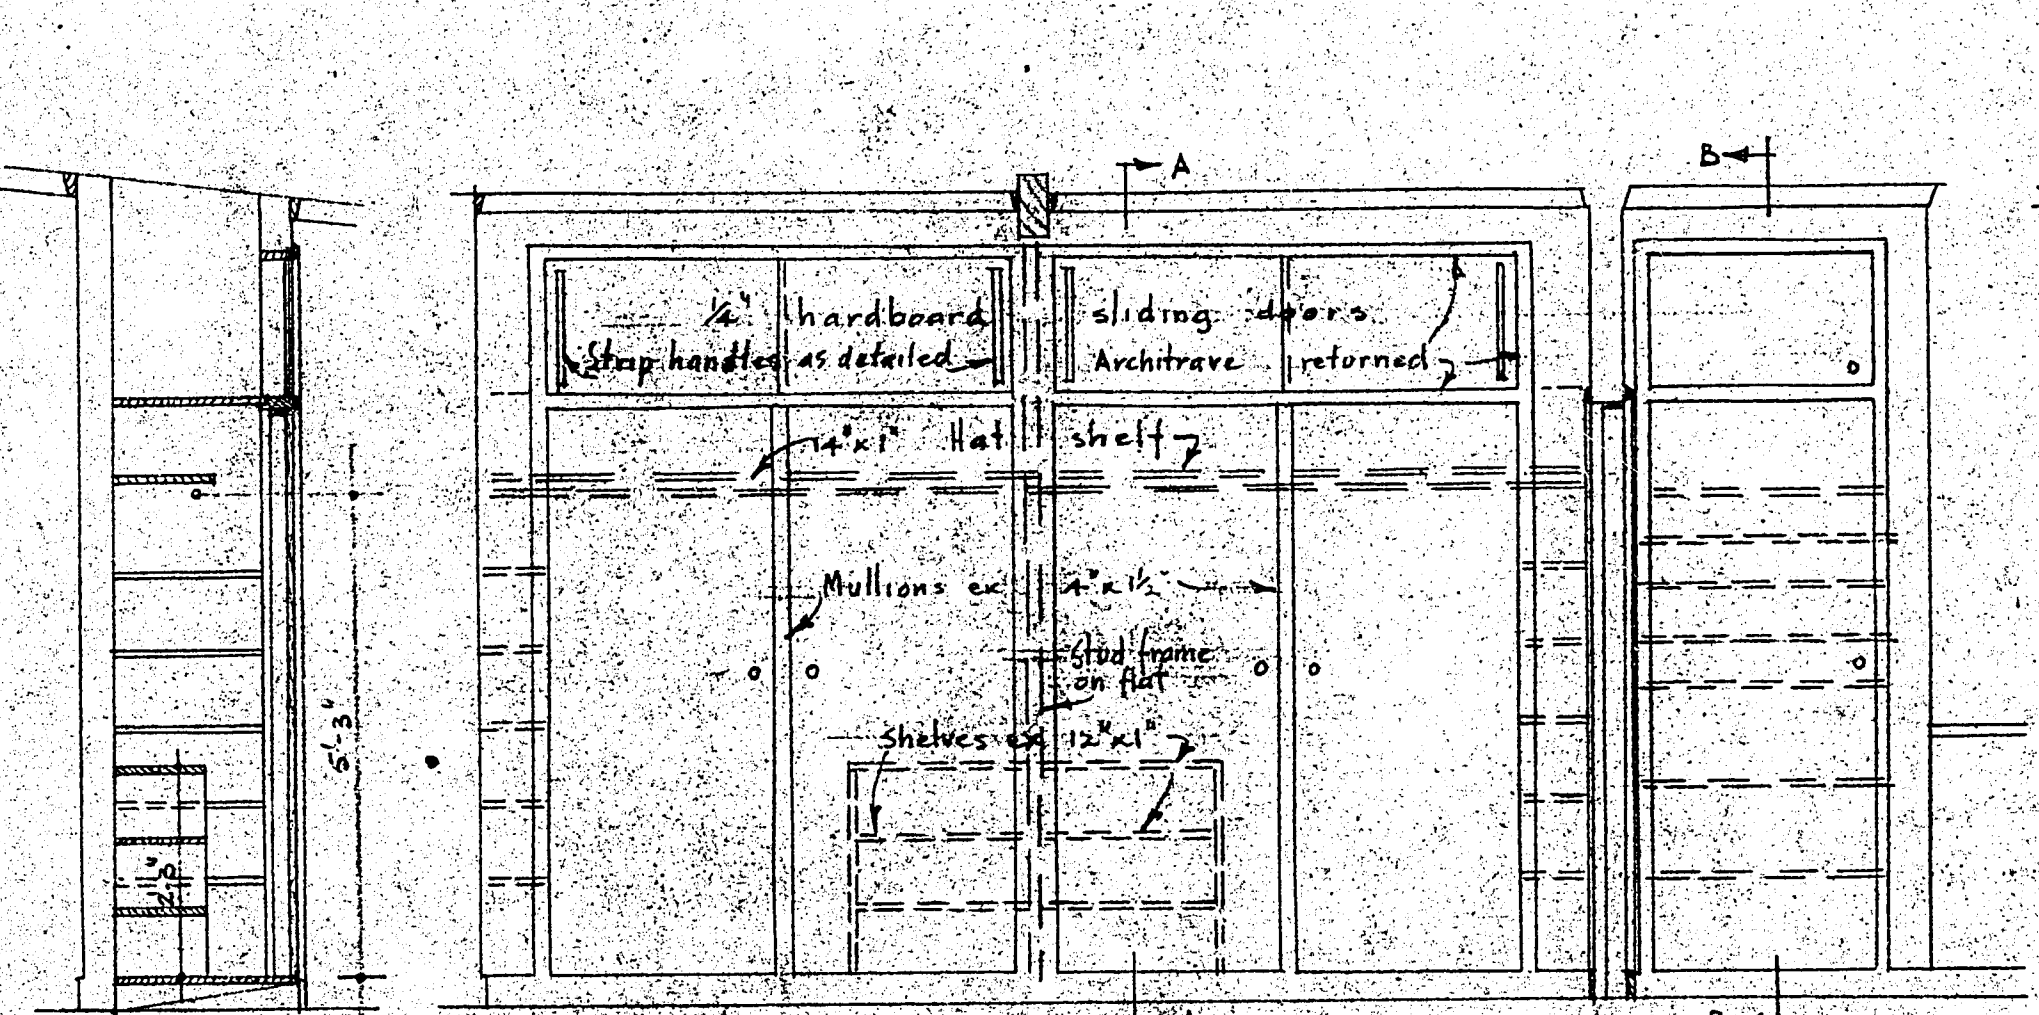 A
B
1/4" hardboard sliding doors
Strap handles as detailed
Architrave returned
14"x1" Hat shelf
Mullions ex 4"x1½"
Stud frame
on flat
Shelves ex 12"x1"
5'-3"
2'-3"